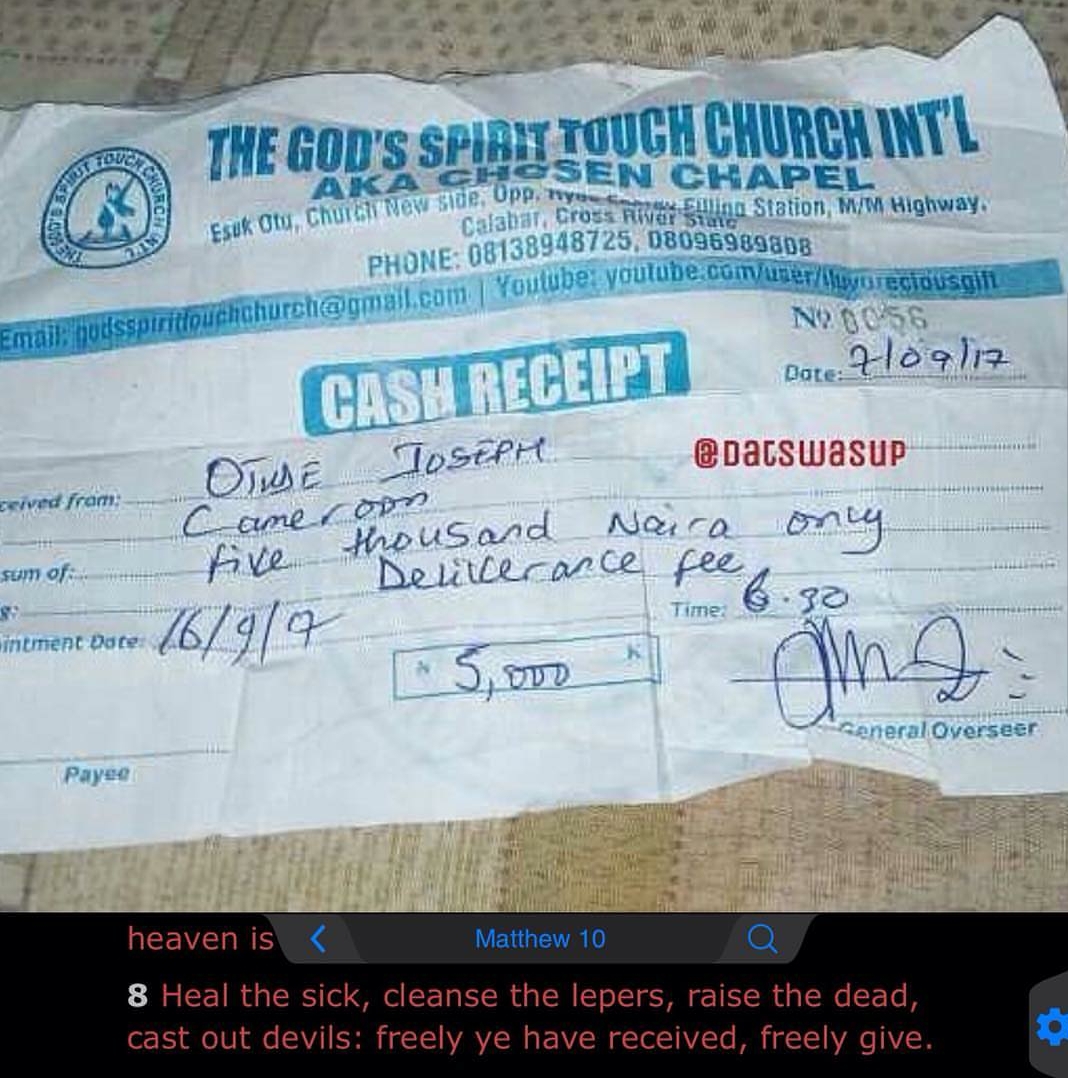 THE GOD'S SPIRIT TOUCH CHURCH INT'L
THE GOD'S SPIRIT TOUCH CHURCH INT'L
AKA CHOSEN CHAPEL
Esuk Otu, Church New side, Opp. Filling Station, M/M Highway,
Calabar, Cross River State
PHONE: 08138948725, 08096989808
Email: godsspirittouchchurch@gmail.com | Youtube: youtube.com/user/thypreciousgift
Nº 0056
CASH RECEIPT
Date: 7/09/17
@DATSWASUP
ceived from: JOSEPH
Cameroon
sum of: five thousand Naira only
g: Deliverance fee
intment Date: 16/9/17 Time: 6.30
N 5,000 K
General Overseer
Payee
heaven is
Matthew 10
8 Heal the sick, cleanse the lepers, raise the dead,
cast out devils: freely ye have received, freely give.